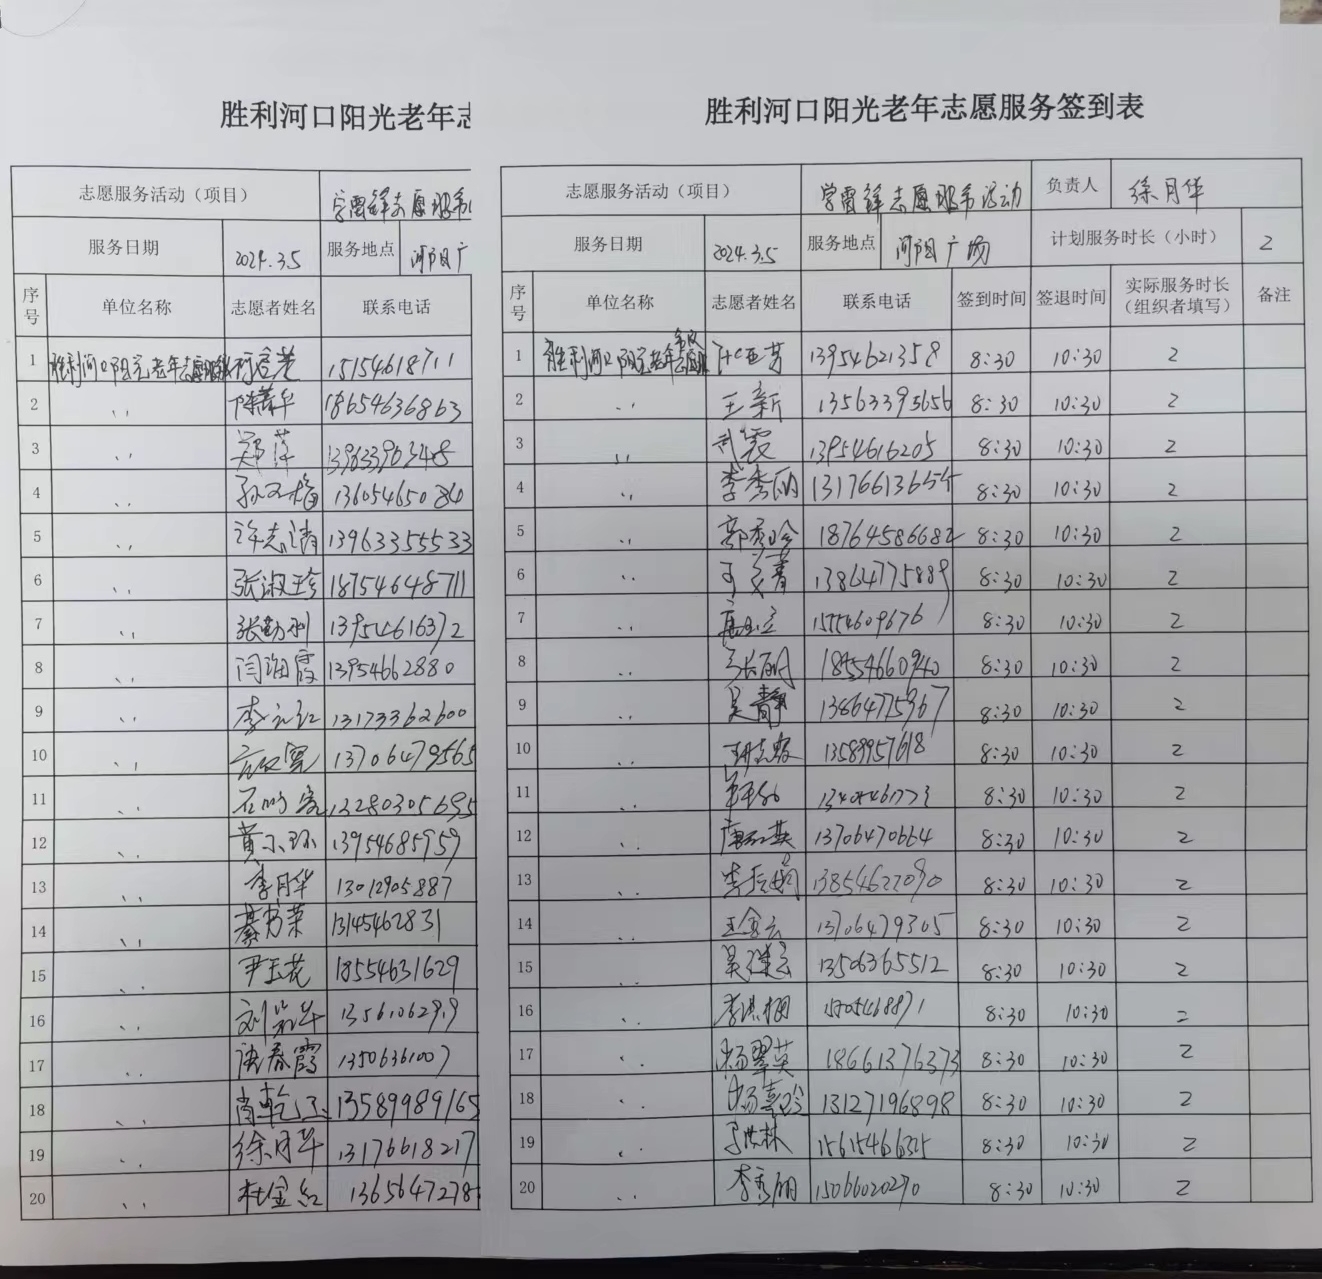 胜利河口阳光老年志
志愿服务活动（项目） 学雷锋志愿服务
服务日期 2024.3.5 服务地点 河阳广
序号 单位名称 志愿者姓名 联系电话
1 胜利河口阳光老年志愿服务 15154618711
2 〃 陈菁华 18654636863
3 〃 郑萍 13963396348
4 〃 13605465084
5 〃 许志清 13963355533
6 〃 张淑珍 18754648711
7 〃 张勤利 13954616372
8 〃 闫海霞 13954662880
9 〃 13173362600
10 〃 13706479565
11 〃 13280305695
12 〃 黄小环 13954685959
13 〃 李月华 13012905887
14 〃 綦书荣 13145462831
15 〃 尹玉花 18554631629
16 〃 1356106299
17 〃 唐春霞 13506361007
18 〃 肖乾江 13589989165
19 〃 徐月华 13176618217
20 〃 杜金红 1365647278
胜利河口阳光老年志愿服务签到表
志愿服务活动（项目） 学雷锋志愿服务活动 负责人 徐月华
服务日期 2024.3.5 服务地点 河阳广场 计划服务时长（小时） 2
序号 单位名称 志愿者姓名 联系电话 签到时间 签退时间 实际服务时长（组织者填写） 备注
1 胜利河口阳光老年志愿服务 13954621358 8:30 10:30 2
2 〃 王新 13563395656 8:30 10:30 2
3 〃 13954616205 8:30 10:30 2
4 〃 李秀丽 13176613654 8:30 10:30 2
5 〃 郭秀玲 18764586682 8:30 10:30 2
6 〃 13864775889 8:30 10:30 2
7 〃 15554609676 8:30 10:30 2
8 〃 张丽 18554660940 8:30 10:30 2
9 〃 吴静 13864775967 8:30 10:30 2
10 〃 13589957618 8:30 10:30 2
11 〃 8:30 10:30 2
12 〃 唐红英 13706470664 8:30 10:30 2
13 〃 13854622090 8:30 10:30 2
14 〃 王金云 13706479305 8:30 10:30 2
15 〃 13506365512 8:30 10:30 2
16 〃 8:30 10:30 2
17 〃 杨翠英 18661376373 8:30 10:30 2
18 〃 杨喜玲 13127196898 8:30 10:30 2
19 〃 8:30 10:30 2
20 〃 李秀丽 15066020270 8:30 10:30 2